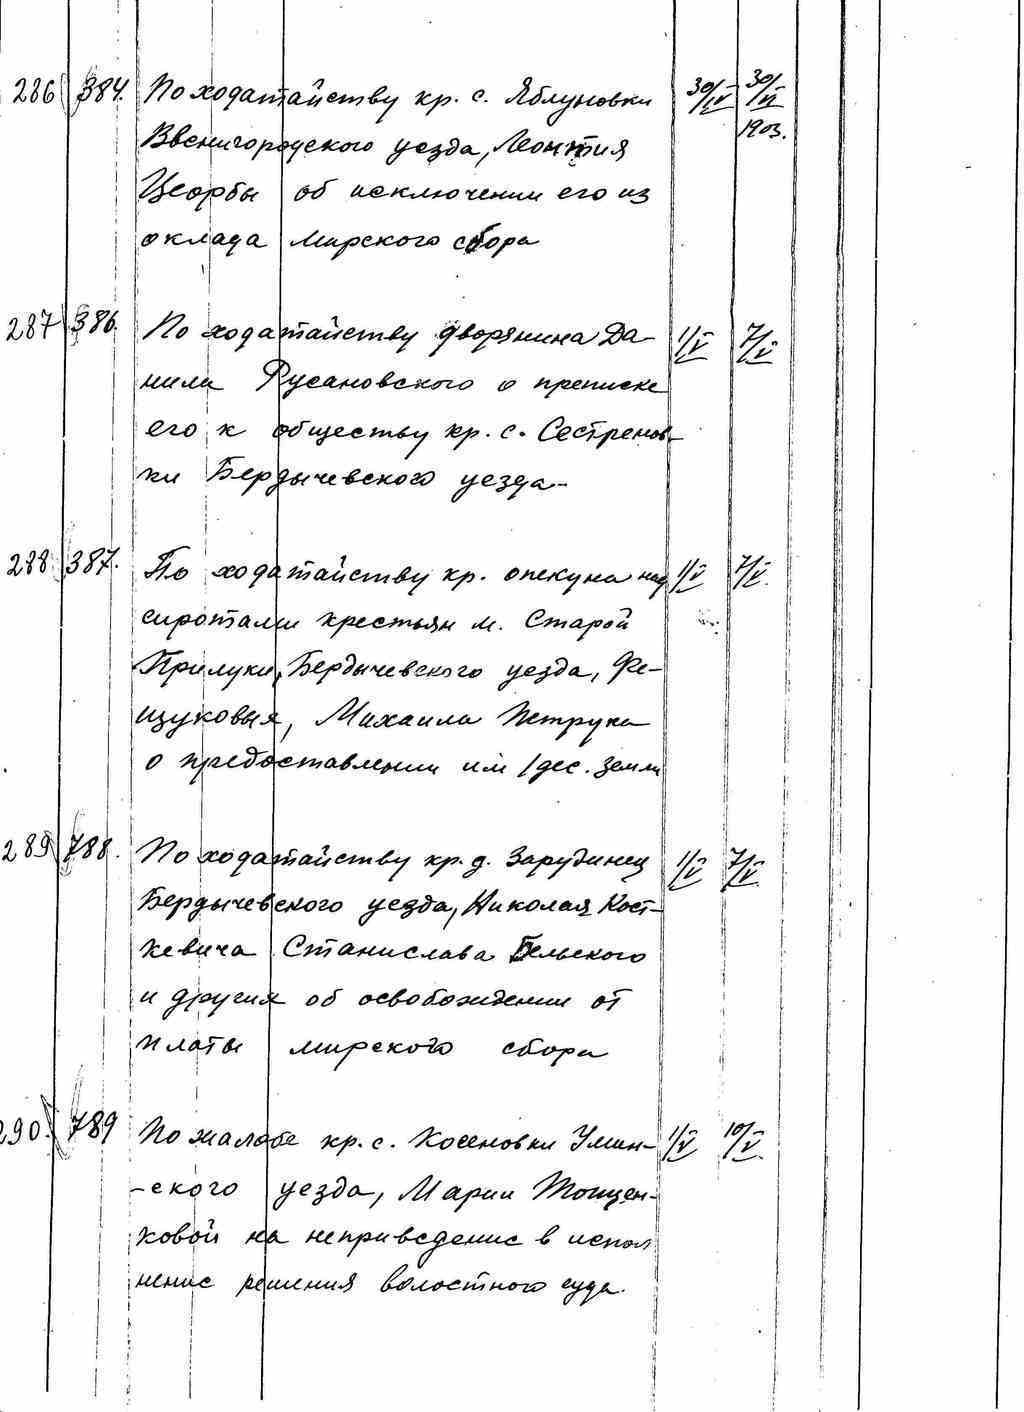 286 384. По ходатайству кр. с. Яблуновки 30/IV 30/VI
Звенигородского уезда, Леонтия 1903.
Цеорбы об исключении его из
оклада мирского сбора
287 386. По ходатайству дворянина Да- 1/V 7/V
нила Русановского о преписке
его к обществу кр. с. Сестренов-
ки Бердычевского уезда-
288 387. По ходатайству кр. опекуна над 1/V 7/V.
сиротами крестьян м. Старой
Прилуки, Бердычевского уезда, Фе-
щуковыя, Михаила Петрука
о предоставлении им 1 дес. земли
289 788. По ходатайству кр. д. Зарудинец 1/V 7/V.
Бердычевского уезда, Николая Кост-
кевича Станислава Бельского
и другия об освобождении от
платы мирского сбора
290. 789 По жалобе кр. с. Косеновки Уман- 1/V 10/V.
-ского уезда, Марии Тонцен-
ковой на неприведение в испол
нение решения волостного суда.